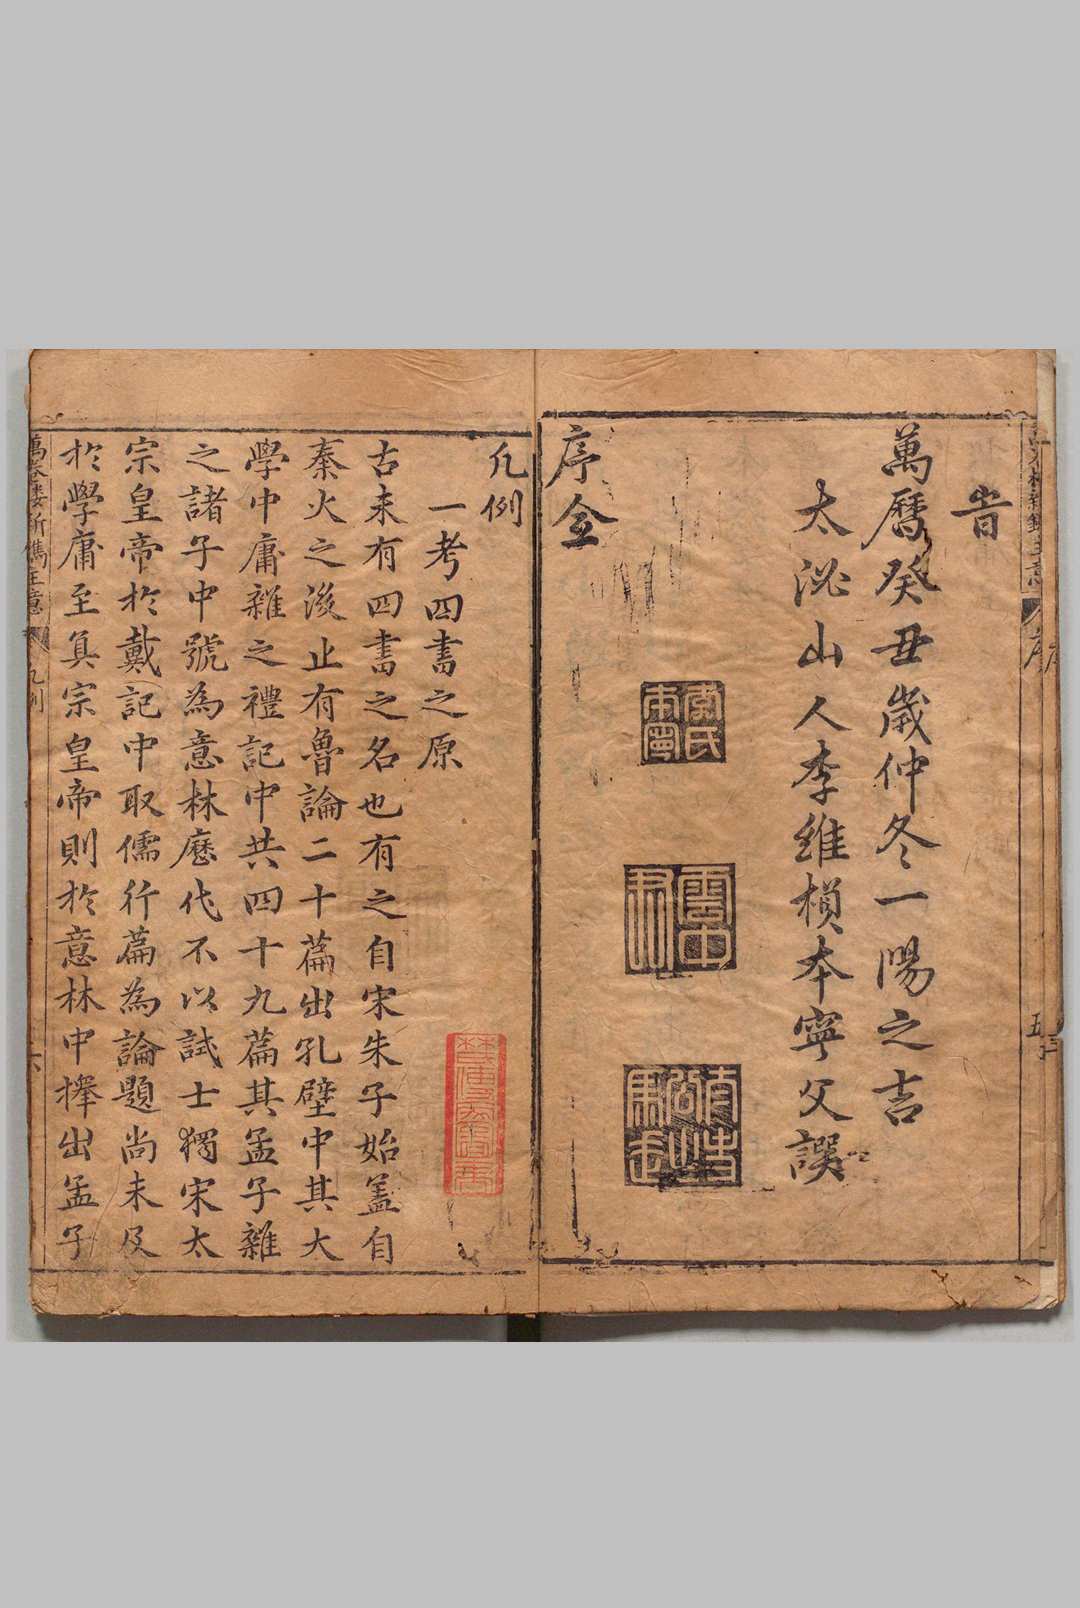 旹
萬曆癸丑歲仲冬一陽之吉
太泌山人李維楨本寧父譔
李氏本寧
雲中
序全
凡例
一考四書之原
古未有四書之名也有之自宋朱子始盖自
秦火之後止有魯論二十篇出孔壁中其大
學中庸雜之禮記中共四十九篇其孟子雜
之諸子中號為意林歷代不以試士獨宋太
宗皇帝於戴記中取儒行篇為論題尚未及
於學庸至真宗皇帝則於意林中擇出孟子
萬春樓新鐫主意 凡例 六